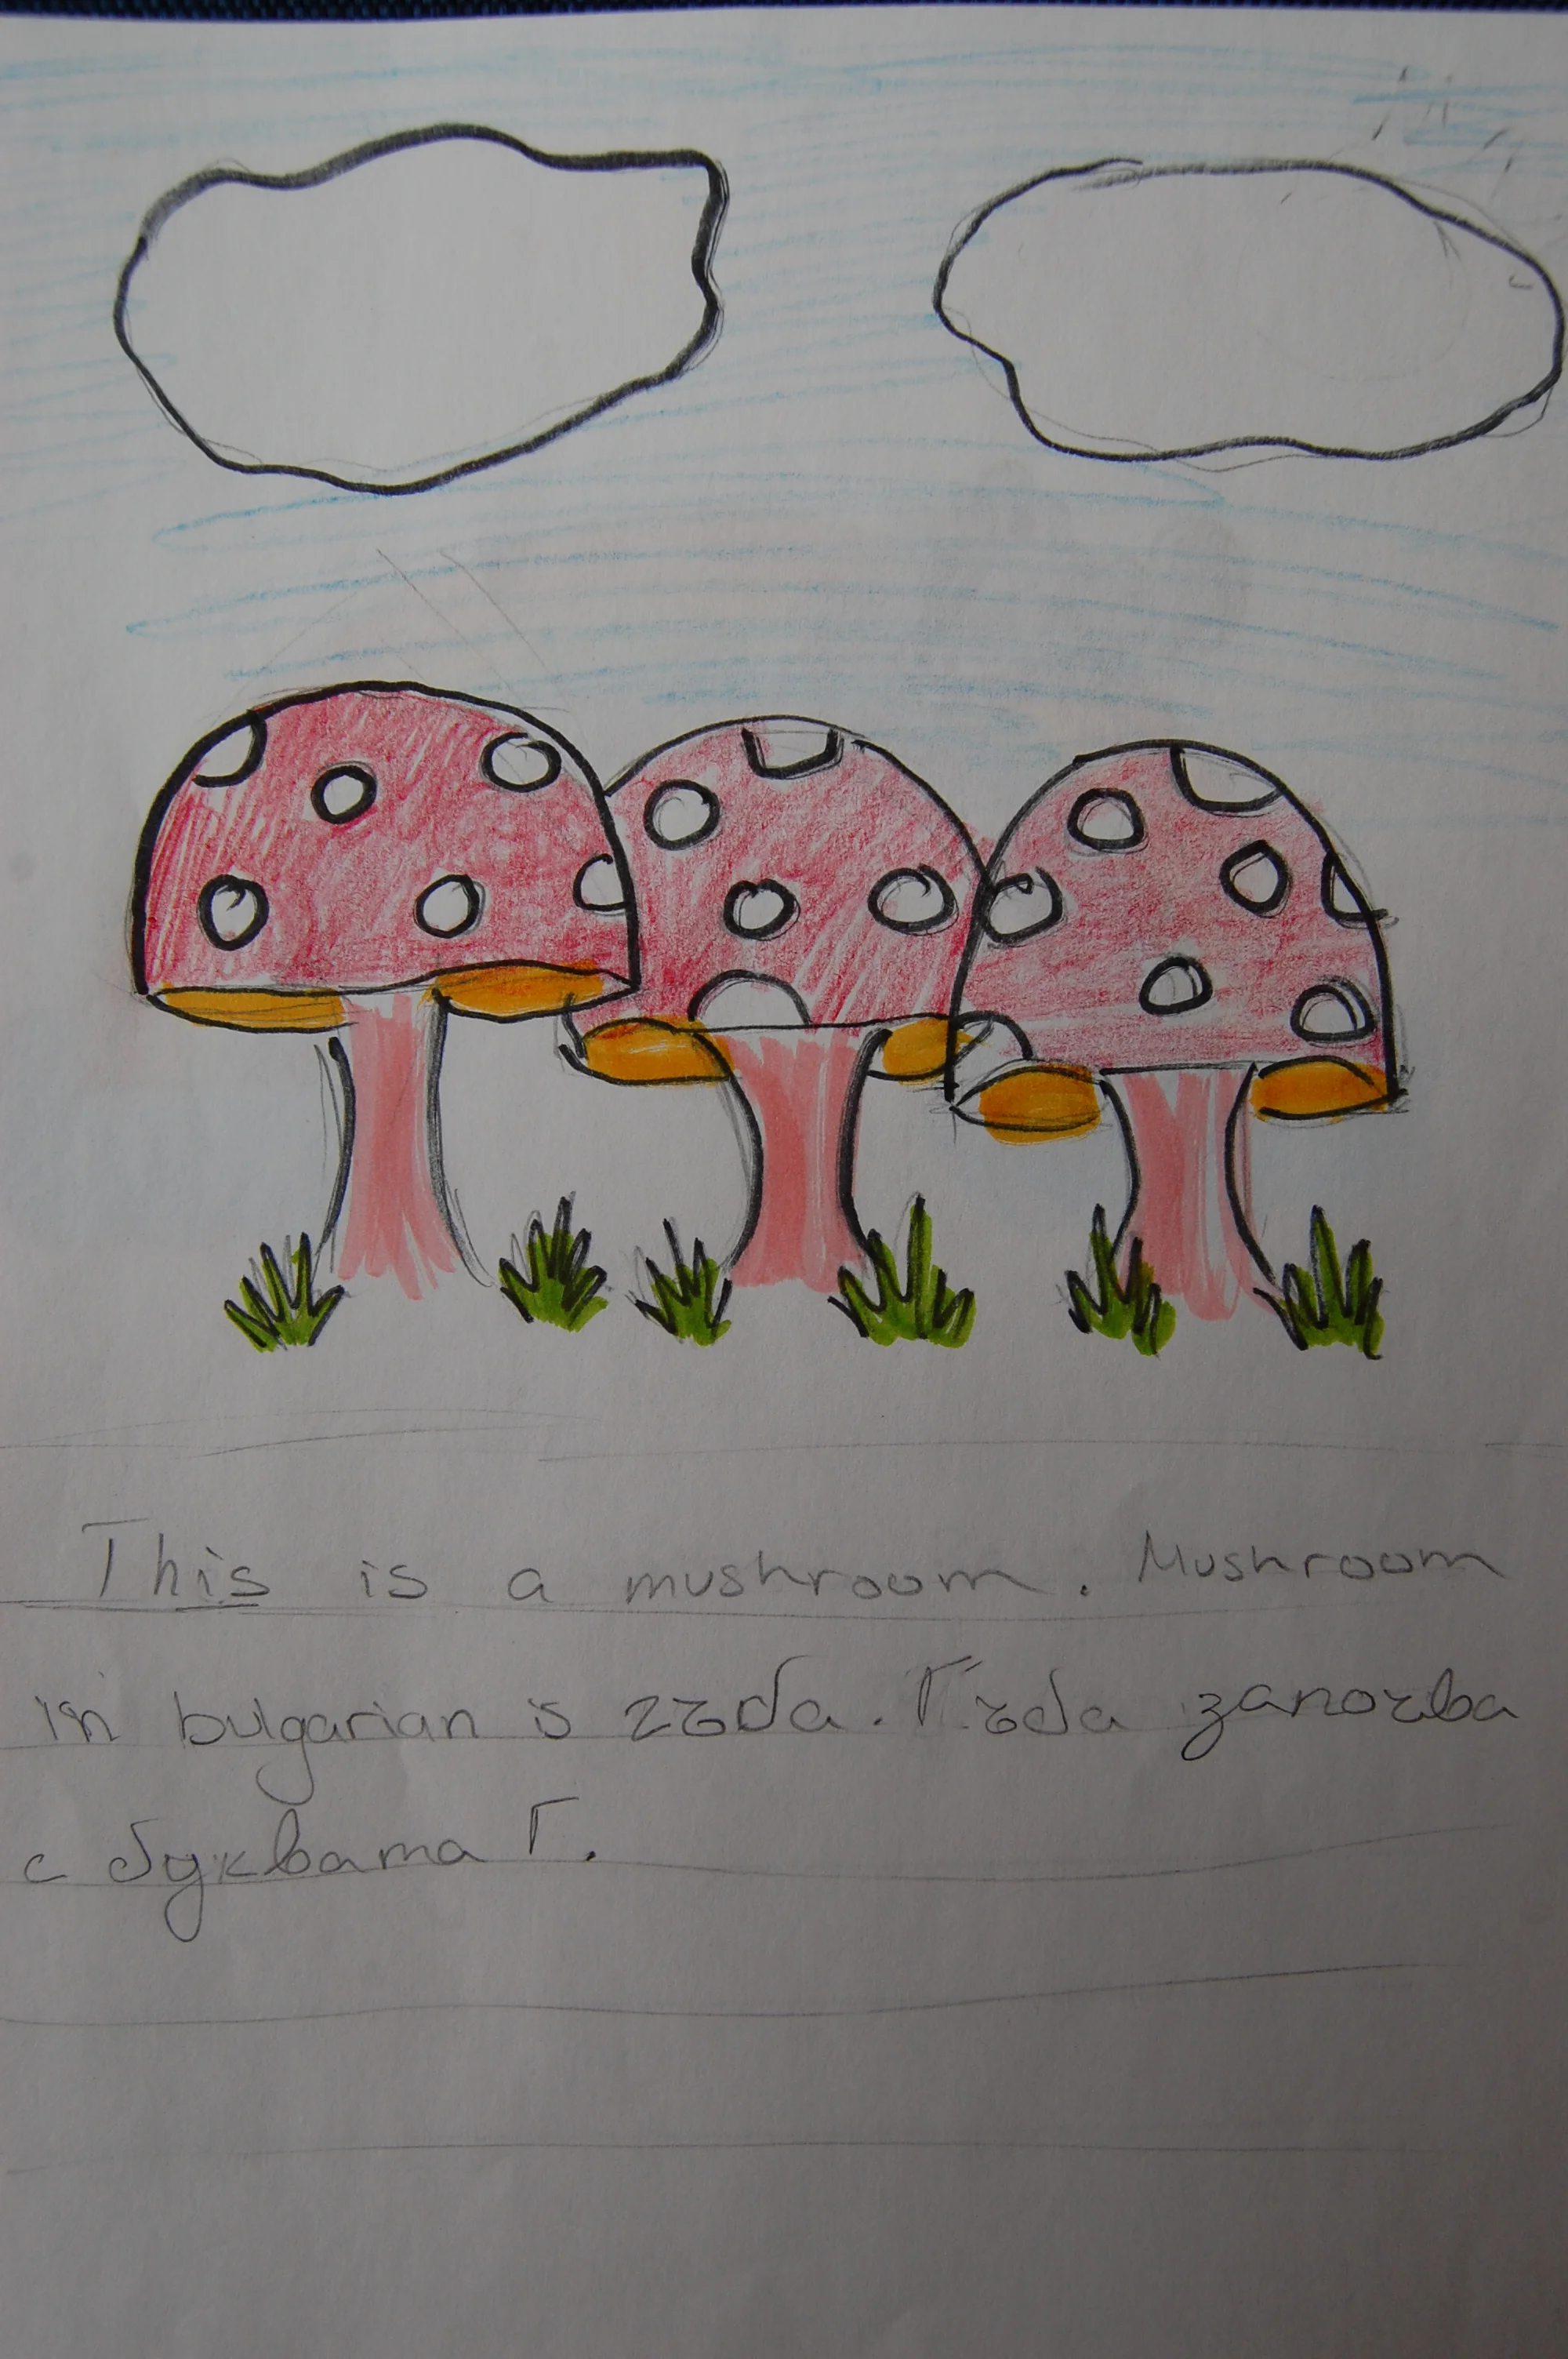 This is a mushroom. Mushroom
in bulgarian is гъба. Гъба започва
с буквата Г.